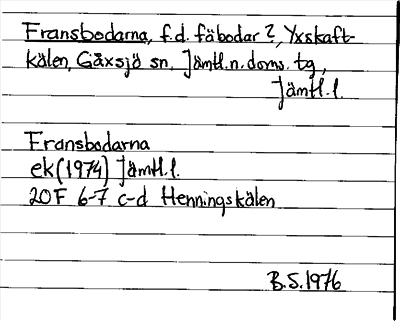 Fransbodarna, f.d. fäbodar?, Yxskaft-
kälen, Gåxsjö sn, Jämtl. n. doms. tg,
Jämtl. l.
Fransbodarna
ek (1974) Jämtl. l.
20F 6-7 c-d Henningskälen
B.S. 1976